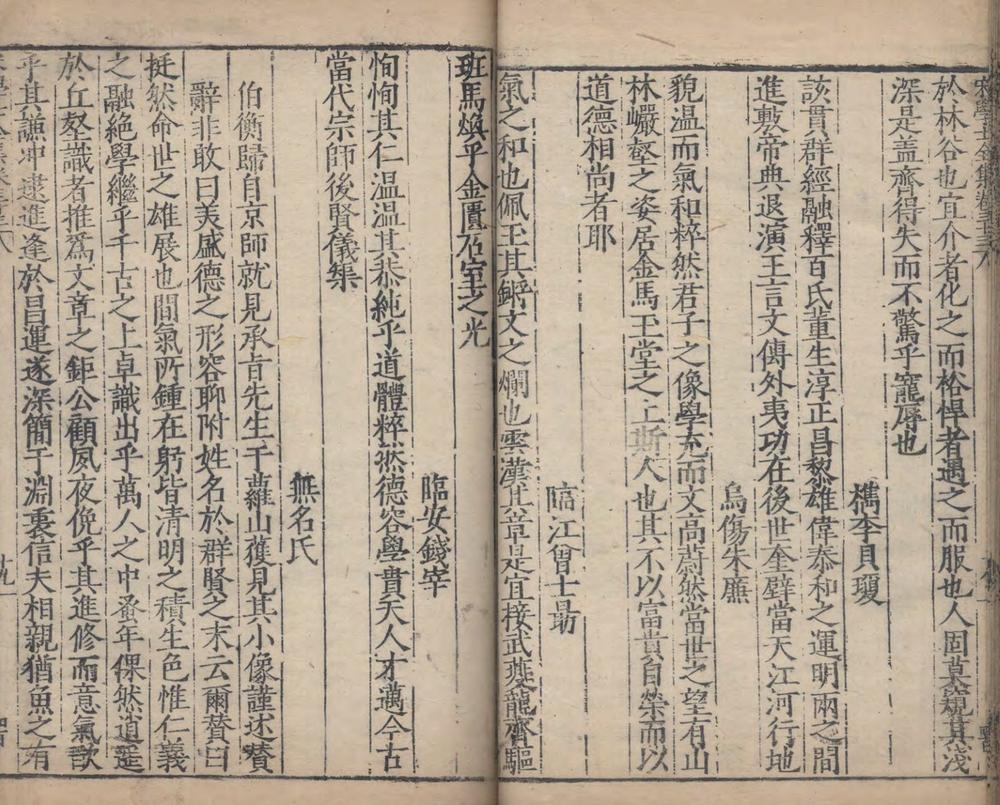 於林谷也宜介者化之而裕悍者遇之而服也人固莫窺其淺
深是盖齊得失而不驚乎寵辱也
檇李貝瓊
該貫群經融釋百氏董生淳正昌黎雄偉泰和之運明兩之間
進敷帝典退演王言文傳外夷功在後世奎璧當天江河行地
烏傷朱廉
貌温而氣和粹然君子之像學充而文高蔚然當世之望有山
林巖壑之姿居金馬玉堂之上斯人也其不以富貴自榮而以
道德相尚者耶
臨江曾士勗
氣之和也佩玉其鏘文之爛也雲漢其章是宜接武夔龍齊驅
班馬煥乎金匱石室之光
臨安錢宰
恂恂其仁温温其恭純乎道體粹然德容學貴天人才邁今古
當代宗師後賢儀矩
無名氏
伯衡歸自京師就見承旨先生于蘿山獲見其小像謹述贊
辭非敢曰美盛德之形容聊附姓名於群賢之末云爾賛曰
挺然命世之雄展也間氣所鍾在躬皆清明之積生色惟仁義
之融絶學繼乎千古之上卓識出乎萬人之中蚤年倮然逍遥
於丘壑識者推爲文章之鉅公顧夙夜俛乎其進修而意氣歉
乎其謙冲逮進逢於昌運遂深簡于淵衷信夫相親猶魚之有